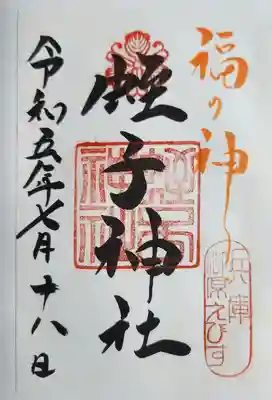 福の神
兵庫
柳原えびす
蛭子神社
蛭子
神社
令和五年七月十八日